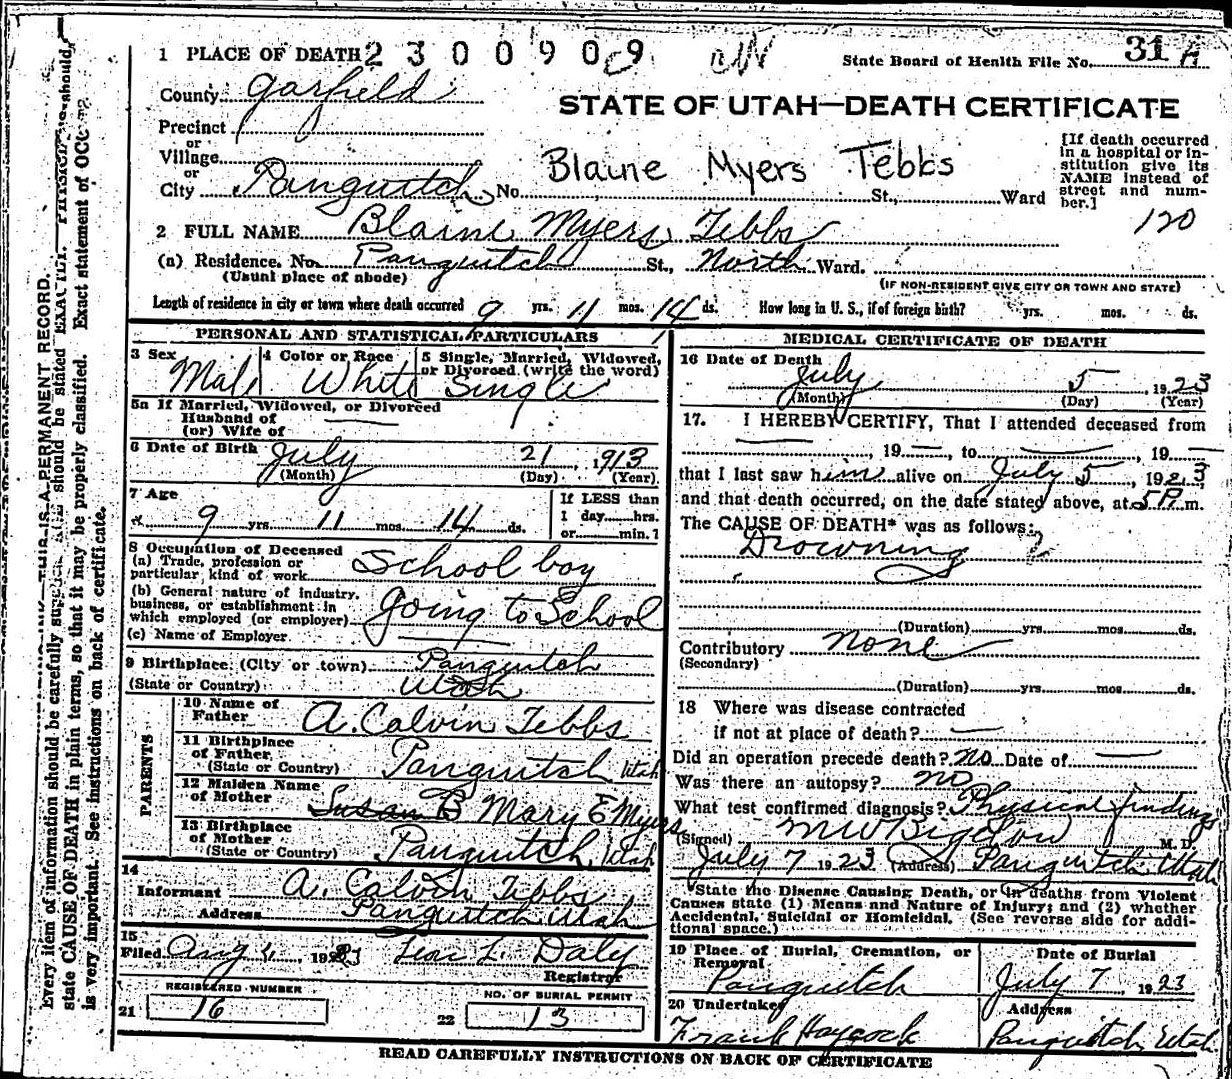 1 PLACE OF DEATH 2300909
State Board of Health File No. 31 A
County Garfield
STATE OF UTAH—DEATH CERTIFICATE
Precinct
or
Village
or
City Panguitch No. Blaine Myers Tebbs St., Ward
[If death occurred
in a hospital or in-
stitution give its
NAME instead of
street and num-
ber.]
120
2 FULL NAME Blaine Myers Tebbs
(a) Residence. No. Panguitch St., North Ward.
(Usual place of abode)
(IF NON-RESIDENT GIVE CITY OR TOWN AND STATE)
Length of residence in city or town where death occurred 9 yrs. 11 mos. 14 ds. How long in U. S., if of foreign birth? yrs. mos. ds.
PERSONAL AND STATISTICAL PARTICULARS
3 Sex 4 Color or Race 5 Single, Married, Widowed,
or Divorced (write the word)
Male White Single
5a If Married, Widowed, or Divorced
Husband of
(or) Wife of
6 Date of Birth July 21, 1913
(Month) (Day) (Year)
7 Age
9 yrs. 11 mos. 14 ds.
If LESS than
1 day......hrs.
or......min.?
8 Occupation of Deceased
(a) Trade, profession or
particular kind of work School boy
(b) General nature of industry,
business, or establishment in
which employed (or employer) going to School
(c) Name of Employer
9 Birthplace (City or town) Panguitch
(State or Country) Utah
PARENTS
10 Name of
Father A. Calvin Tebbs
11 Birthplace
of Father
(State or Country) Panguitch Utah
12 Maiden Name
of Mother Susan B Mary E Myers
13 Birthplace
of Mother
(State or Country) Panguitch, Utah
14
Informant A. Calvin Tebbs
Address Panguitch Utah
15
Filed Aug , 1923 L. Daly
Registrar
REGISTERED NUMBER
21 16
NO. OF BURIAL PERMIT
22 13
MEDICAL CERTIFICATE OF DEATH
16 Date of Death
July 5 1923
(Month) (Day) (Year)
17. I HEREBY CERTIFY, That I attended deceased from
, 19 , to , 19
that I last saw him alive on July 5, 1923
and that death occurred, on the date stated above, at 5 P. m.
The CAUSE OF DEATH* was as follows:
Drowning
(Duration) yrs. mos. ds.
Contributory none
(Secondary)
(Duration) yrs. mos. ds.
18 Where was disease contracted
if not at place of death?
Did an operation precede death? no Date of
Was there an autopsy? no
What test confirmed diagnosis? Physical findings
(Signed) M W Bigelow M. D.
July 7 1923 (Address) Panguitch Utah
*State the Disease Causing Death, or in deaths from Violent
Causes state (1) Means and Nature of Injury; and (2) whether
Accidental, Suicidal or Homicidal. (See reverse side for addi-
tional space.)
19 Place of Burial, Cremation, or
Removal
Panguitch
Date of Burial
July 7, 1923
20 Undertaker
Frank Haycock
Address
Panguitch Utah
READ CAREFULLY INSTRUCTIONS ON BACK OF CERTIFICATE
THIS IS A PERMANENT RECORD.
Every item of information should be carefully supplied. AGE should be stated EXACTLY. PHYSICIANS should
state CAUSE OF DEATH in plain terms, so that it may be properly classified. Exact statement of OCC
is very important. See instructions on back of certificate.